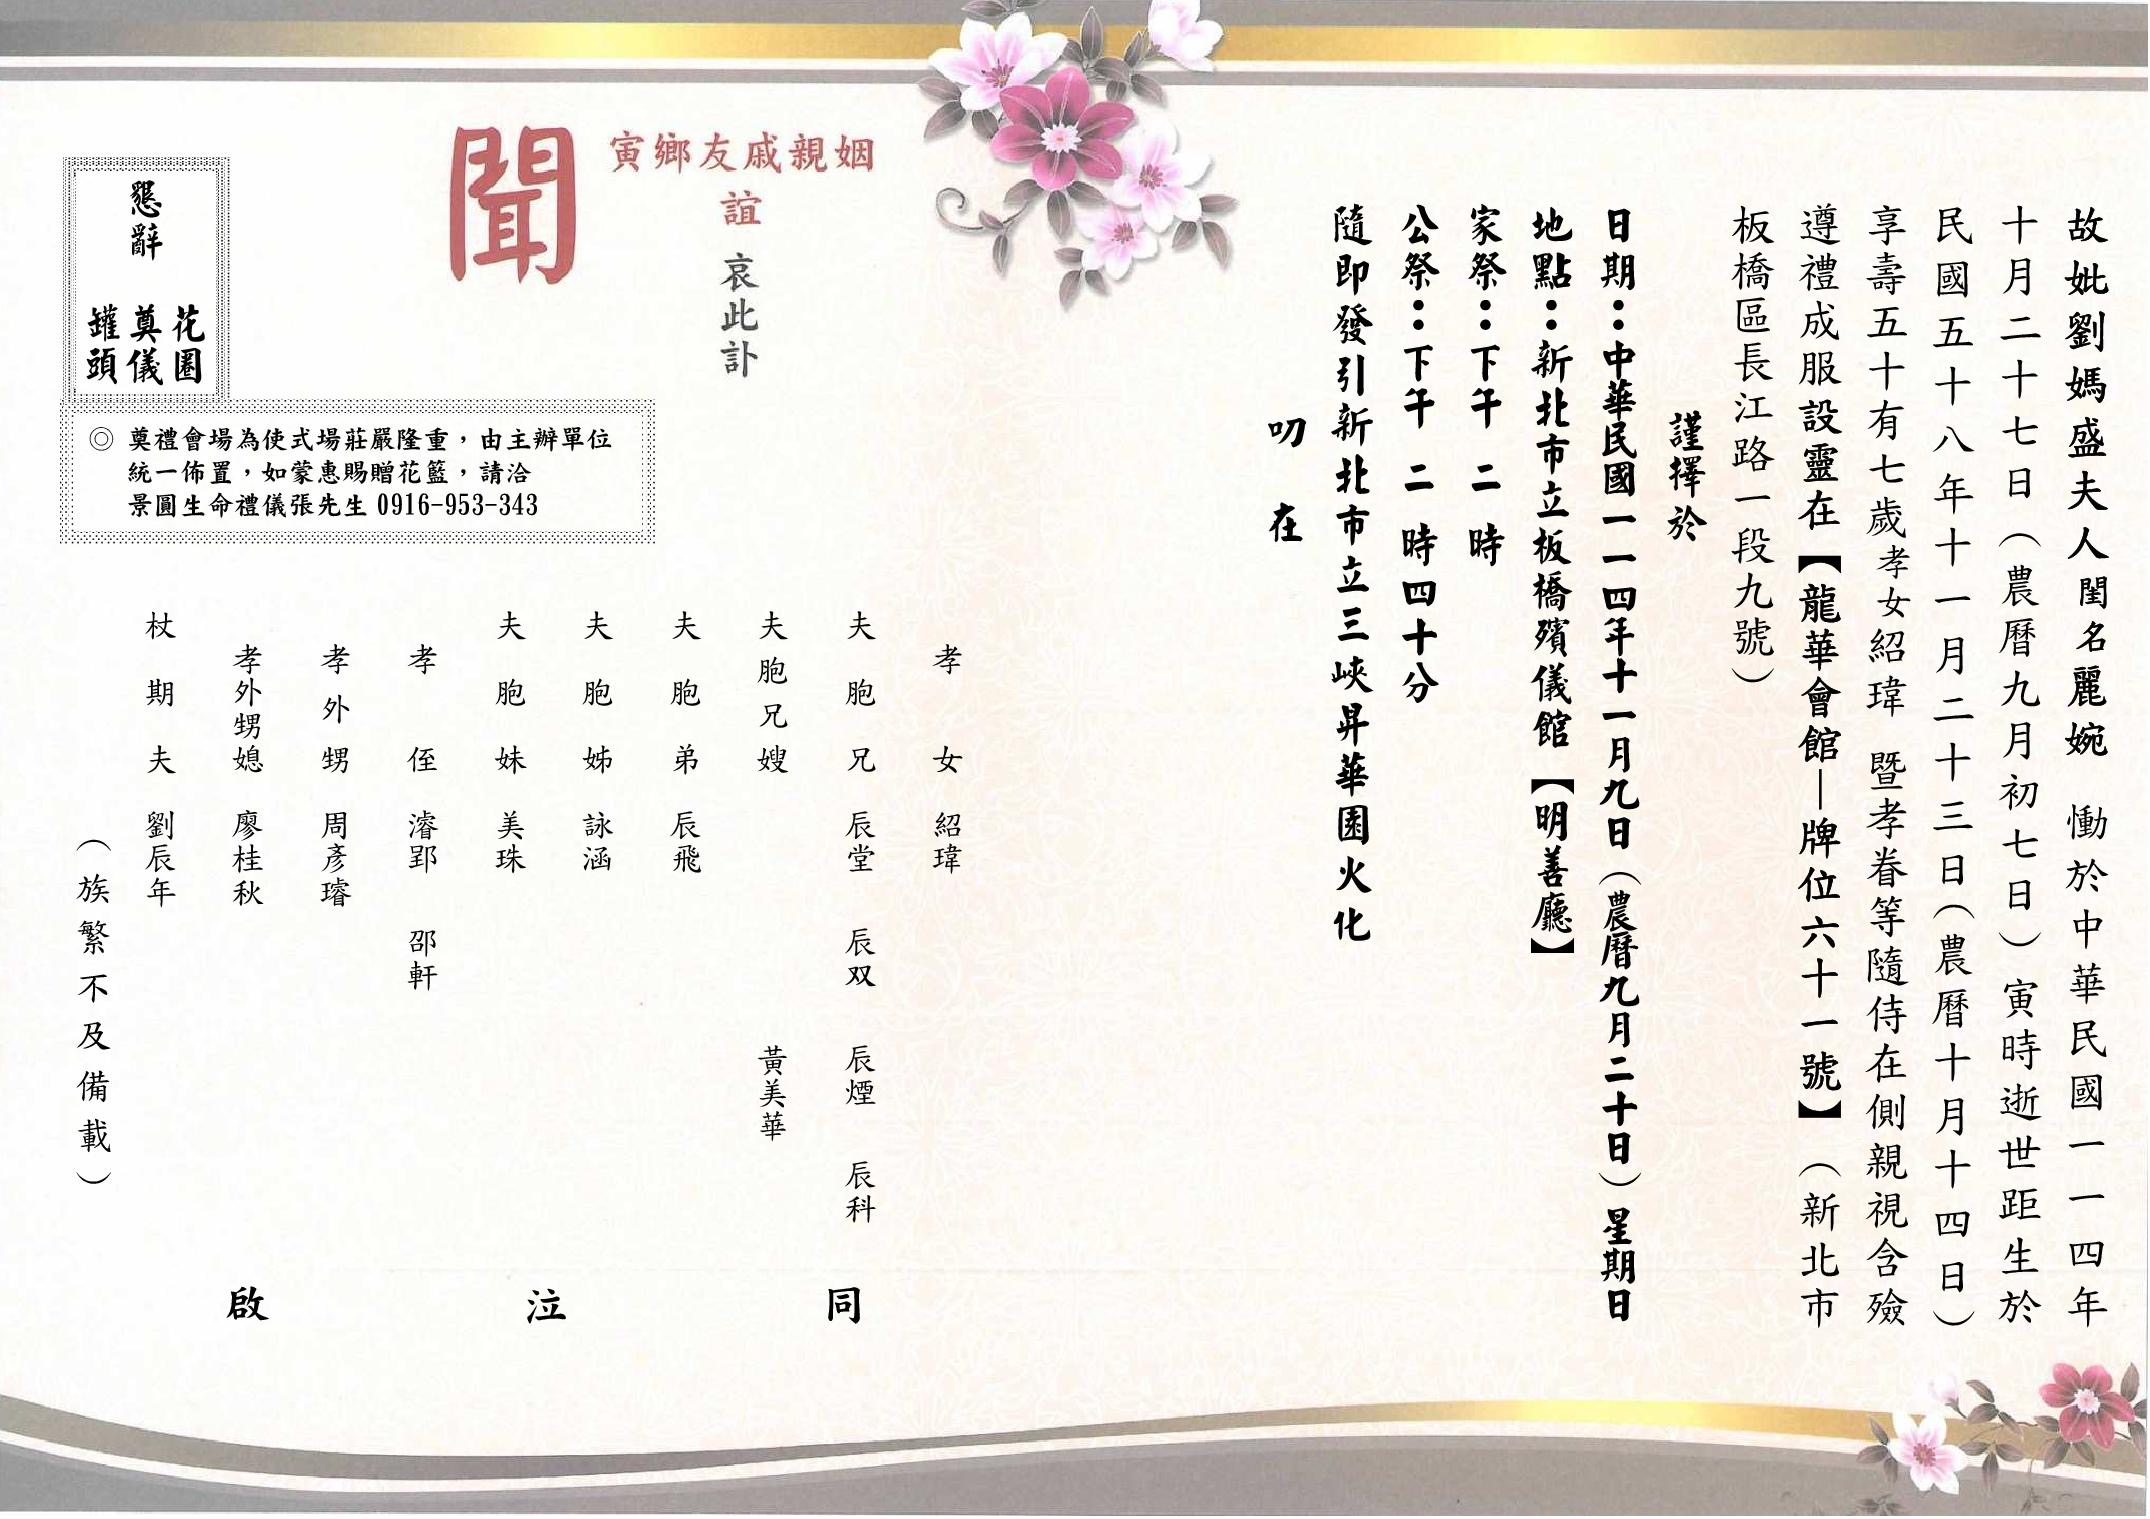 故妣劉媽盛夫人閨名麗婉　慟於中華民國一一四年
十月二十七日（農曆九月初七日）寅時逝世距生於
民國五十八年十一月二十三日（農曆十月十四日）
享壽五十有七歲孝女紹瑋 暨孝眷等隨侍在側親視含殮
遵禮成服設靈在【龍華會館—牌位六十一號】（新北市
板橋區長江路一段九號）
謹擇於
日期：中華民國一一四年十一月九日（農曆九月二十日）星期日
地點：新北市立板橋殯儀館【明善廳】
家祭：下午 二 時
公祭：下午 二 時四十分
隨即發引新北市立三峽昇華園火化
叨 在
姻親戚友鄉寅
誼 哀此訃
聞
孝女 紹瑋
夫胞兄 辰堂 辰双 辰煙 辰科
夫胞兄嫂 黃美華
夫胞弟 辰飛
夫胞姊 詠涵
夫胞妹 美珠
孝侄 濬郢 邵軒
孝外甥 周彥璿
孝外甥媳 廖桂秋
杖期夫 劉辰年
（族繁不及備載）
同 泣 啟
懇辭
花圈
奠儀
罐頭
◎ 奠禮會場為使式場莊嚴隆重，由主辦單位
統一佈置，如蒙惠賜贈花籃，請洽
景圓生命禮儀張先生 0916-953-343